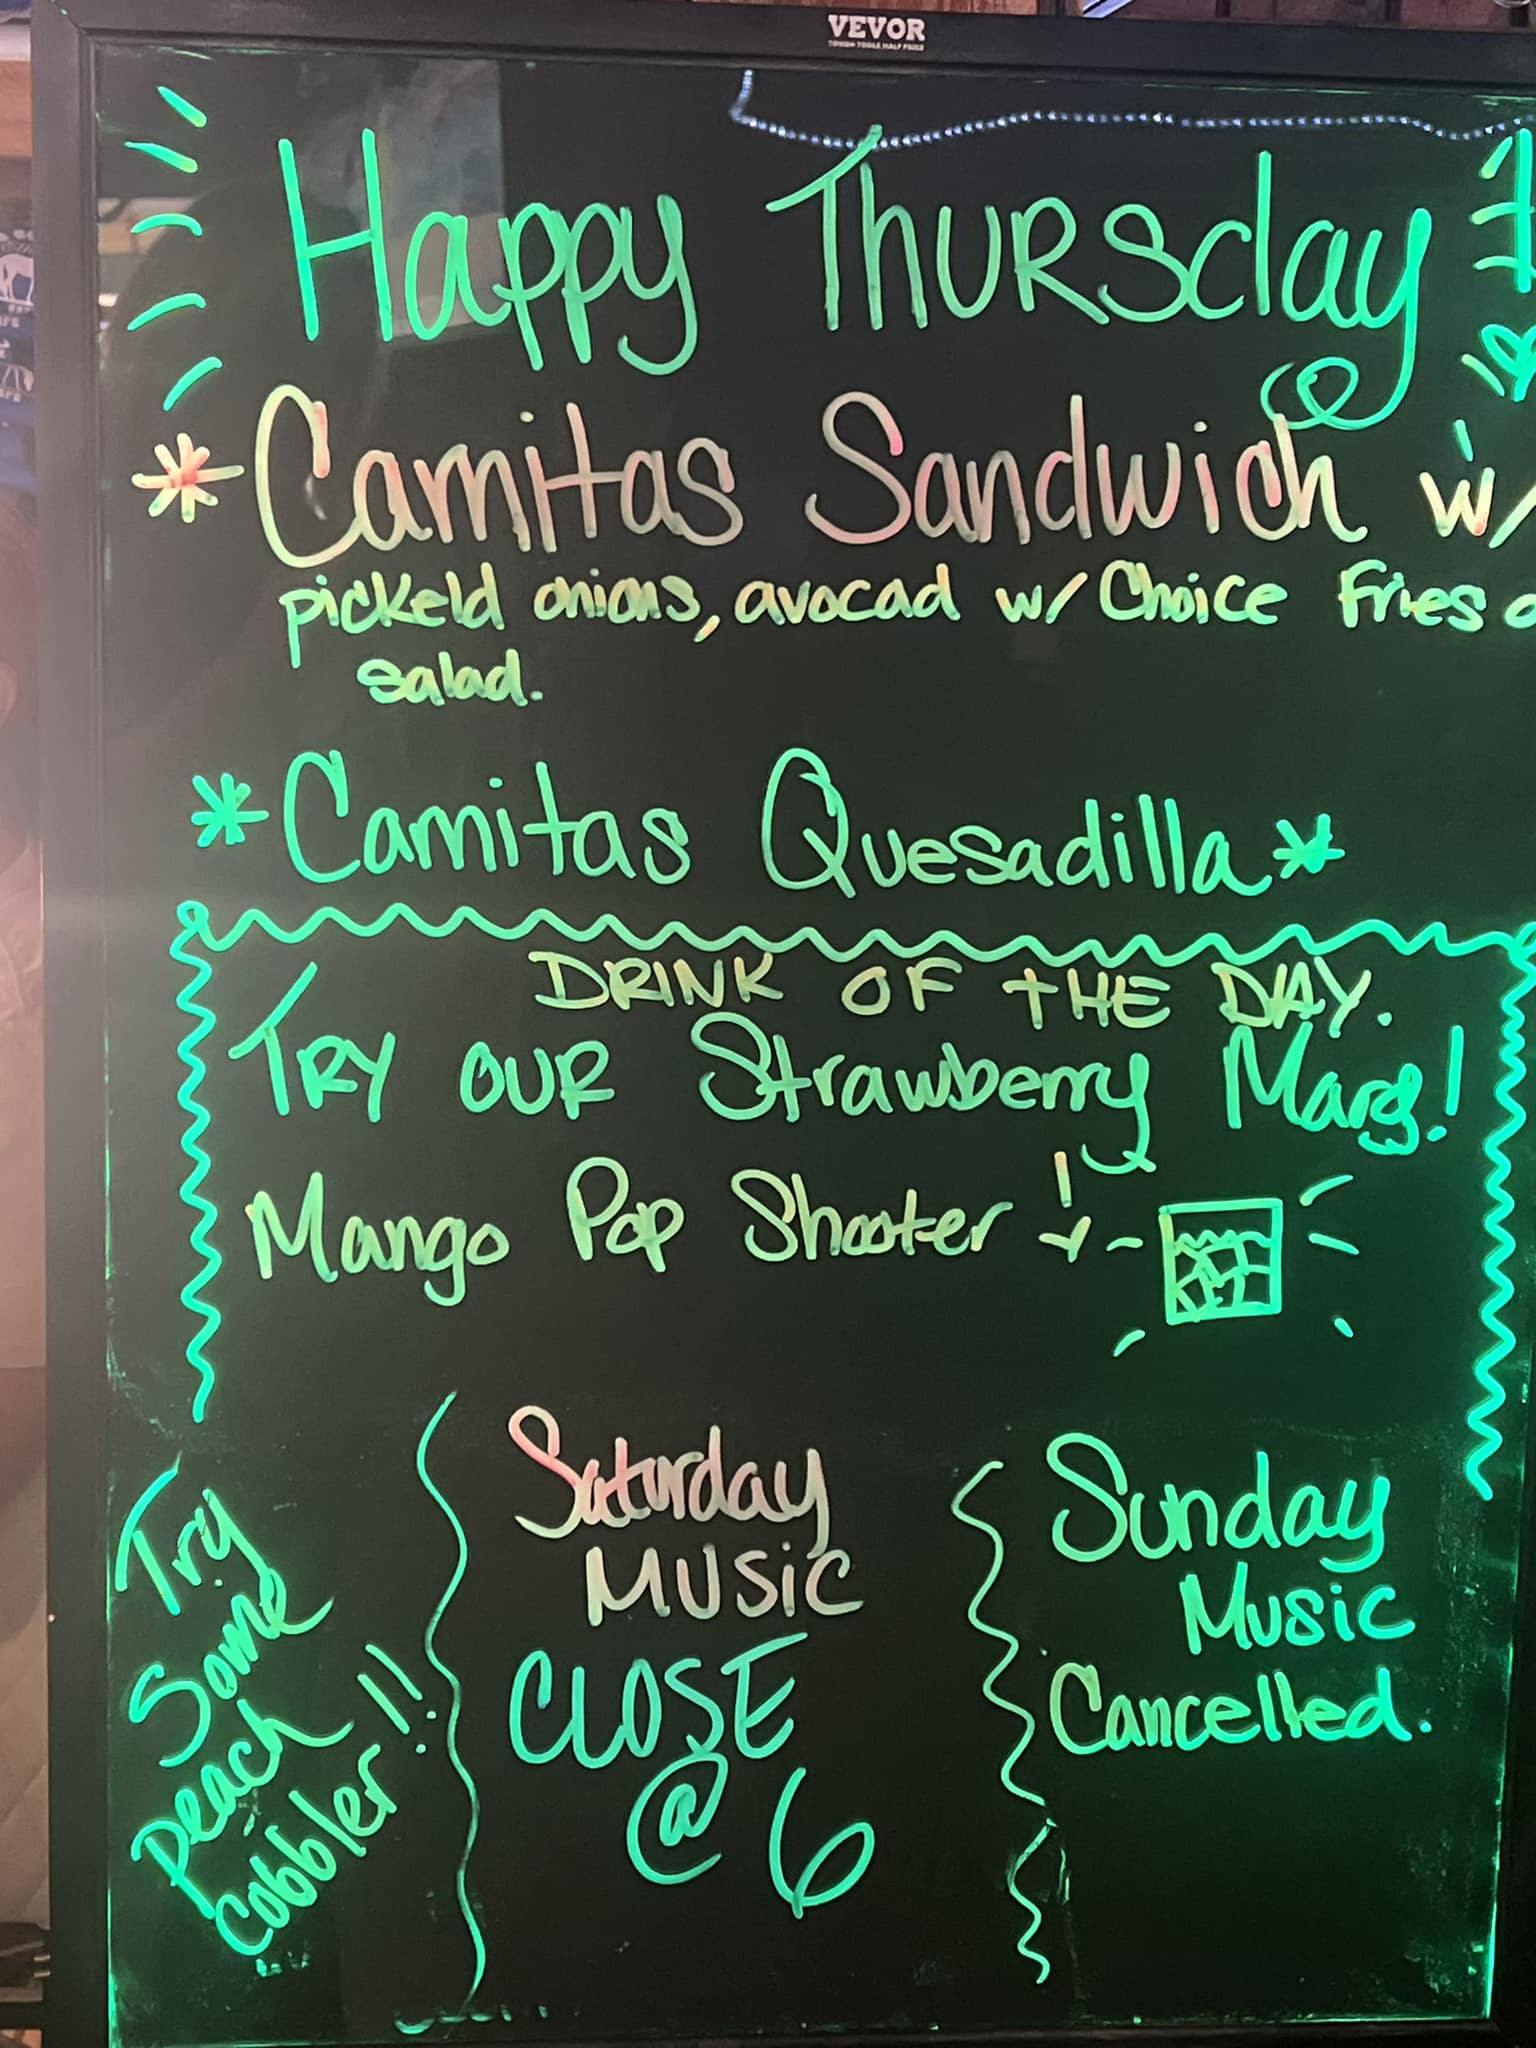 VEVOR
TOUGH TOOLS, HALF PRICE
Happy Thursday
*Carnitas Sandwich w/
pickeld onions, avocad w/ Choice Fries o
salad.
*Carnitas Quesadilla*
DRINK OF THE DAY.
TRY OUR Strawberry Marg!
Mango Pop Shooter!
Try
Some
peach
Cobbler!!
Saturday
MUSIC
CLOSE
@ 6
Sunday
Music
Cancelled.